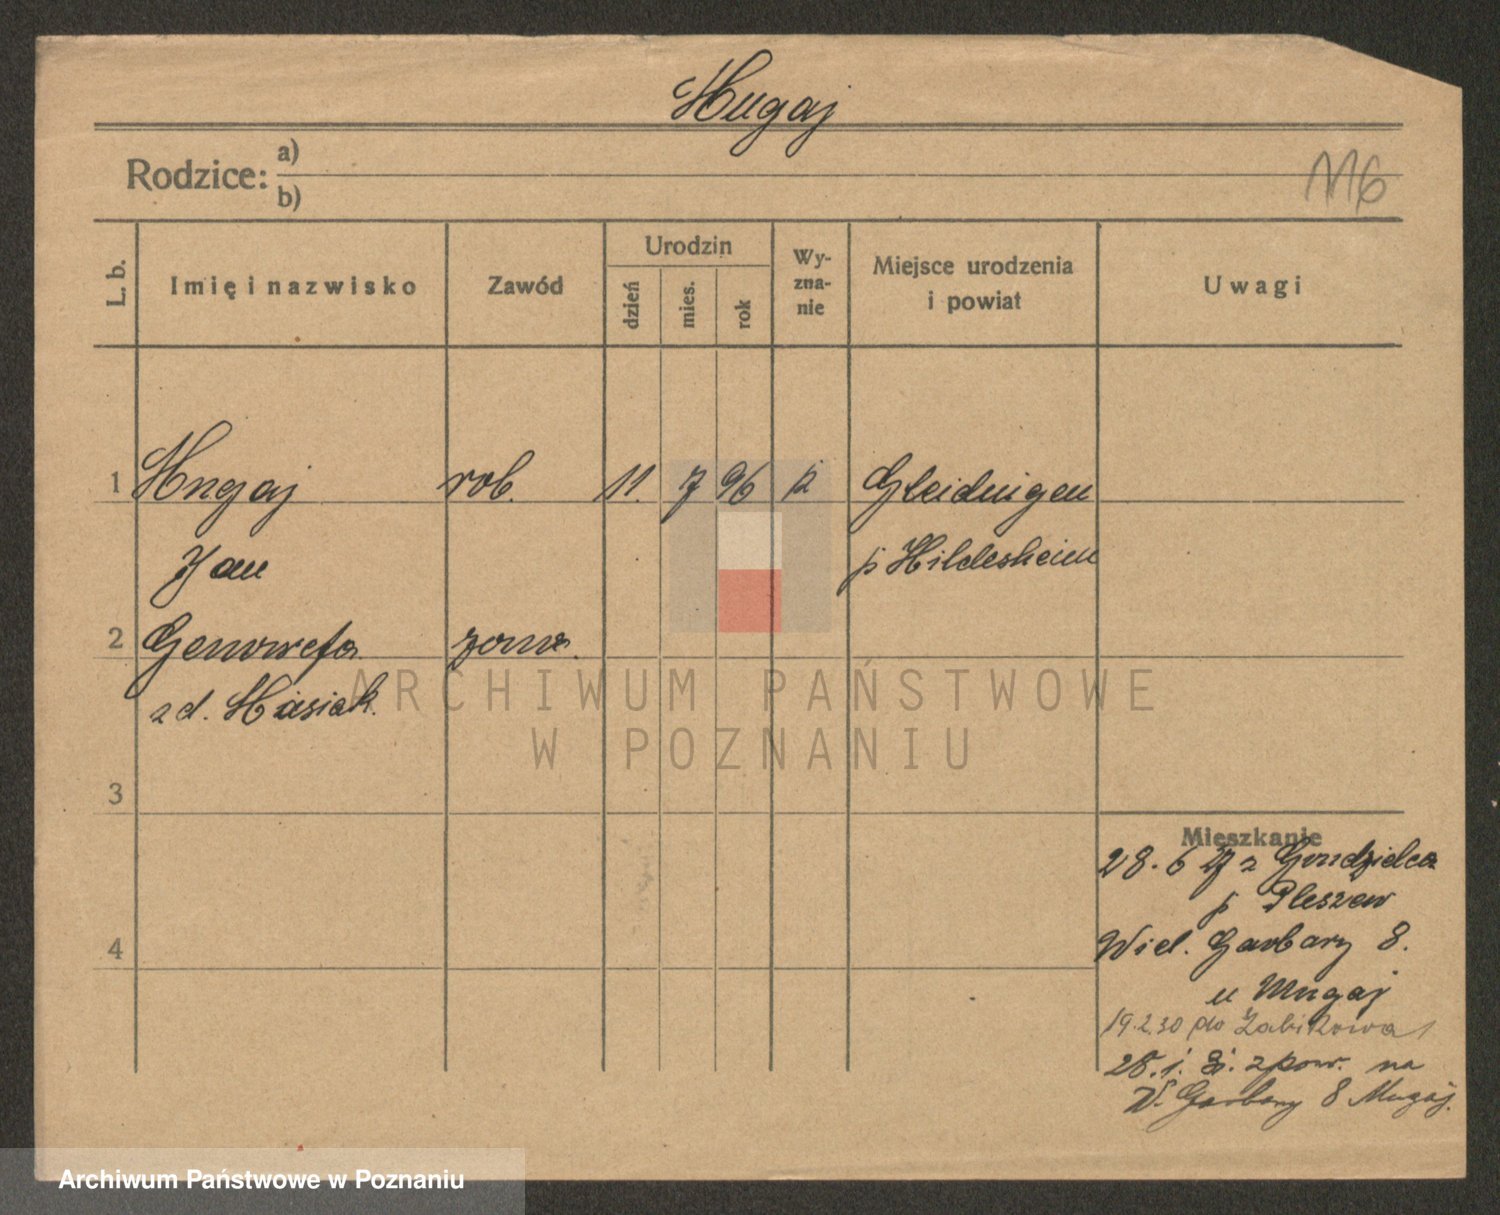 Hugaj
Rodzice: a)
b)
M6
L. b.
Imię i nazwisko
Zawód
Urodzin
dzień
mies.
rok
Wy-
zna-
nie
Miejsce urodzenia
i powiat
Uwagi
1 Hugaj rob. 11. 7 96 Gleidnigen
Jan p Hildesheim
2 Genowefa
z d. Hasiak.
3
4
Mieszkanie
28. 6 27 z Gondzielca
p Pleszew
Wiel. Garbary 8.
u Mugaj
19.2.30 do Żabikowa
28. 1. z pow. na
W. Garbary 8 Mugaj.
ARCHIWUM PAŃSTWOWE
W POZNANIU
Archiwum Państwowe w Poznaniu